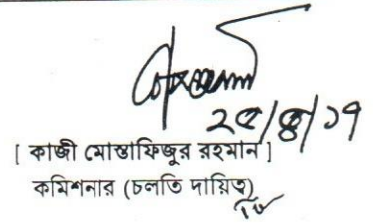 ২৫/৪/১৭
[ কাজী মোস্তাফিজুর রহমান ]
কমিশনার (চলতি দায়িত্ব)